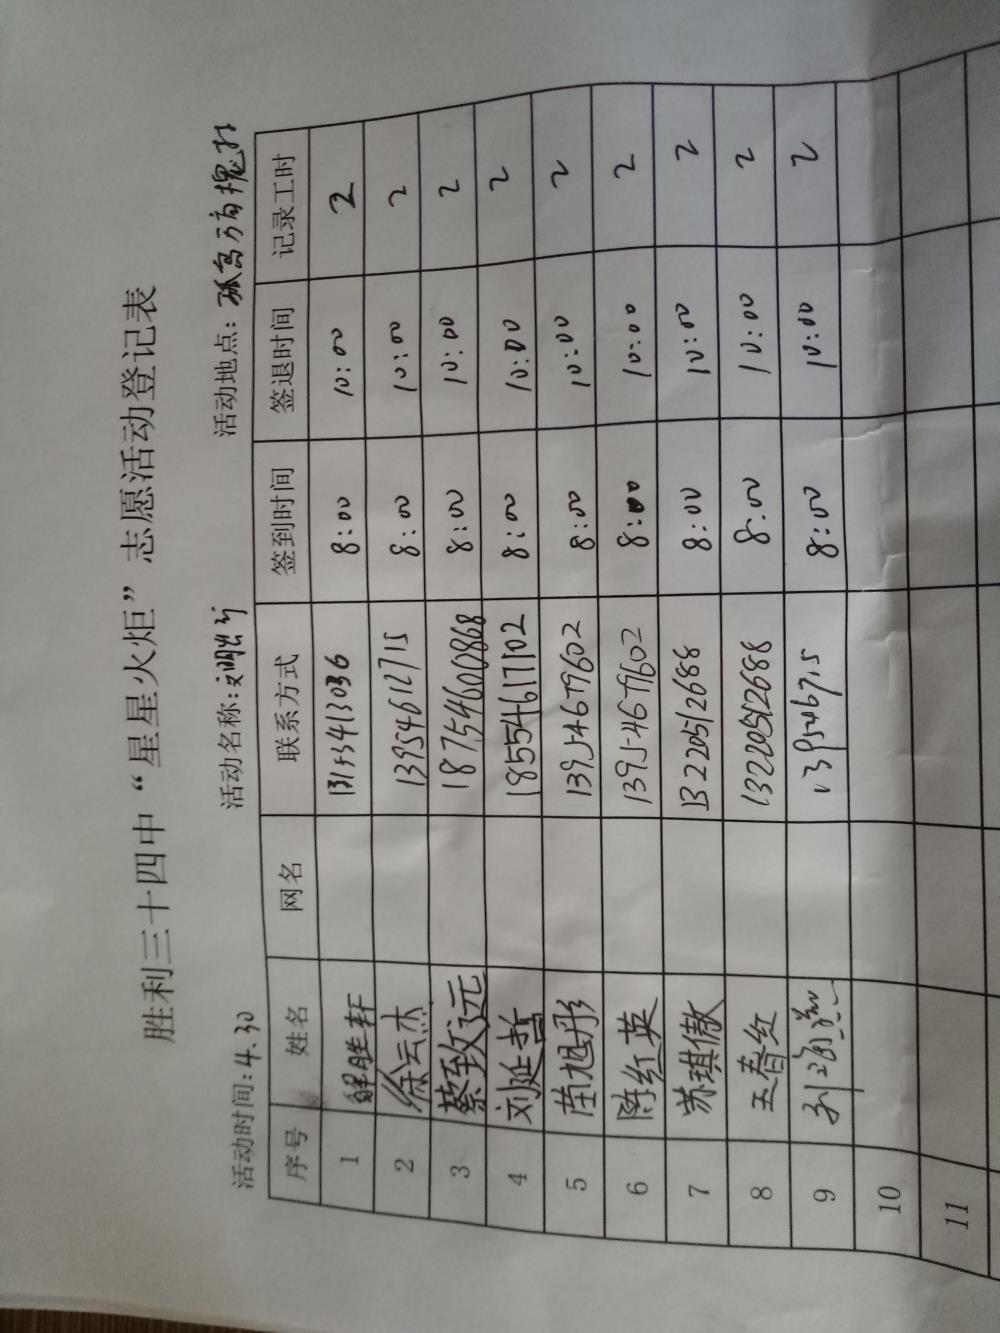 胜利三十四中“星星火炬”志愿活动登记表
活动时间:4.30 活动名称: 活动地点:孤岛万亩槐林
序号 姓名 网名 联系方式 签到时间 签退时间 记录工时
1 解胜轩 8:00 10:00 2
2 徐云杰 13954612715 8:00 10:00 2
3 蔡致远 18754600868 8:00 10:00 2
4 刘延哲 18554617102 8:00 10:00 2
5 苗旭彤 13954679602 8:00 10:00 2
6 陈红英 13954679602 8:00 10:00 2
7 苏琪傲 13220512688 8:00 10:00 2
8 王春红 13220512688 8:00 10:00 2
9 8:00 10:00 2
10
11